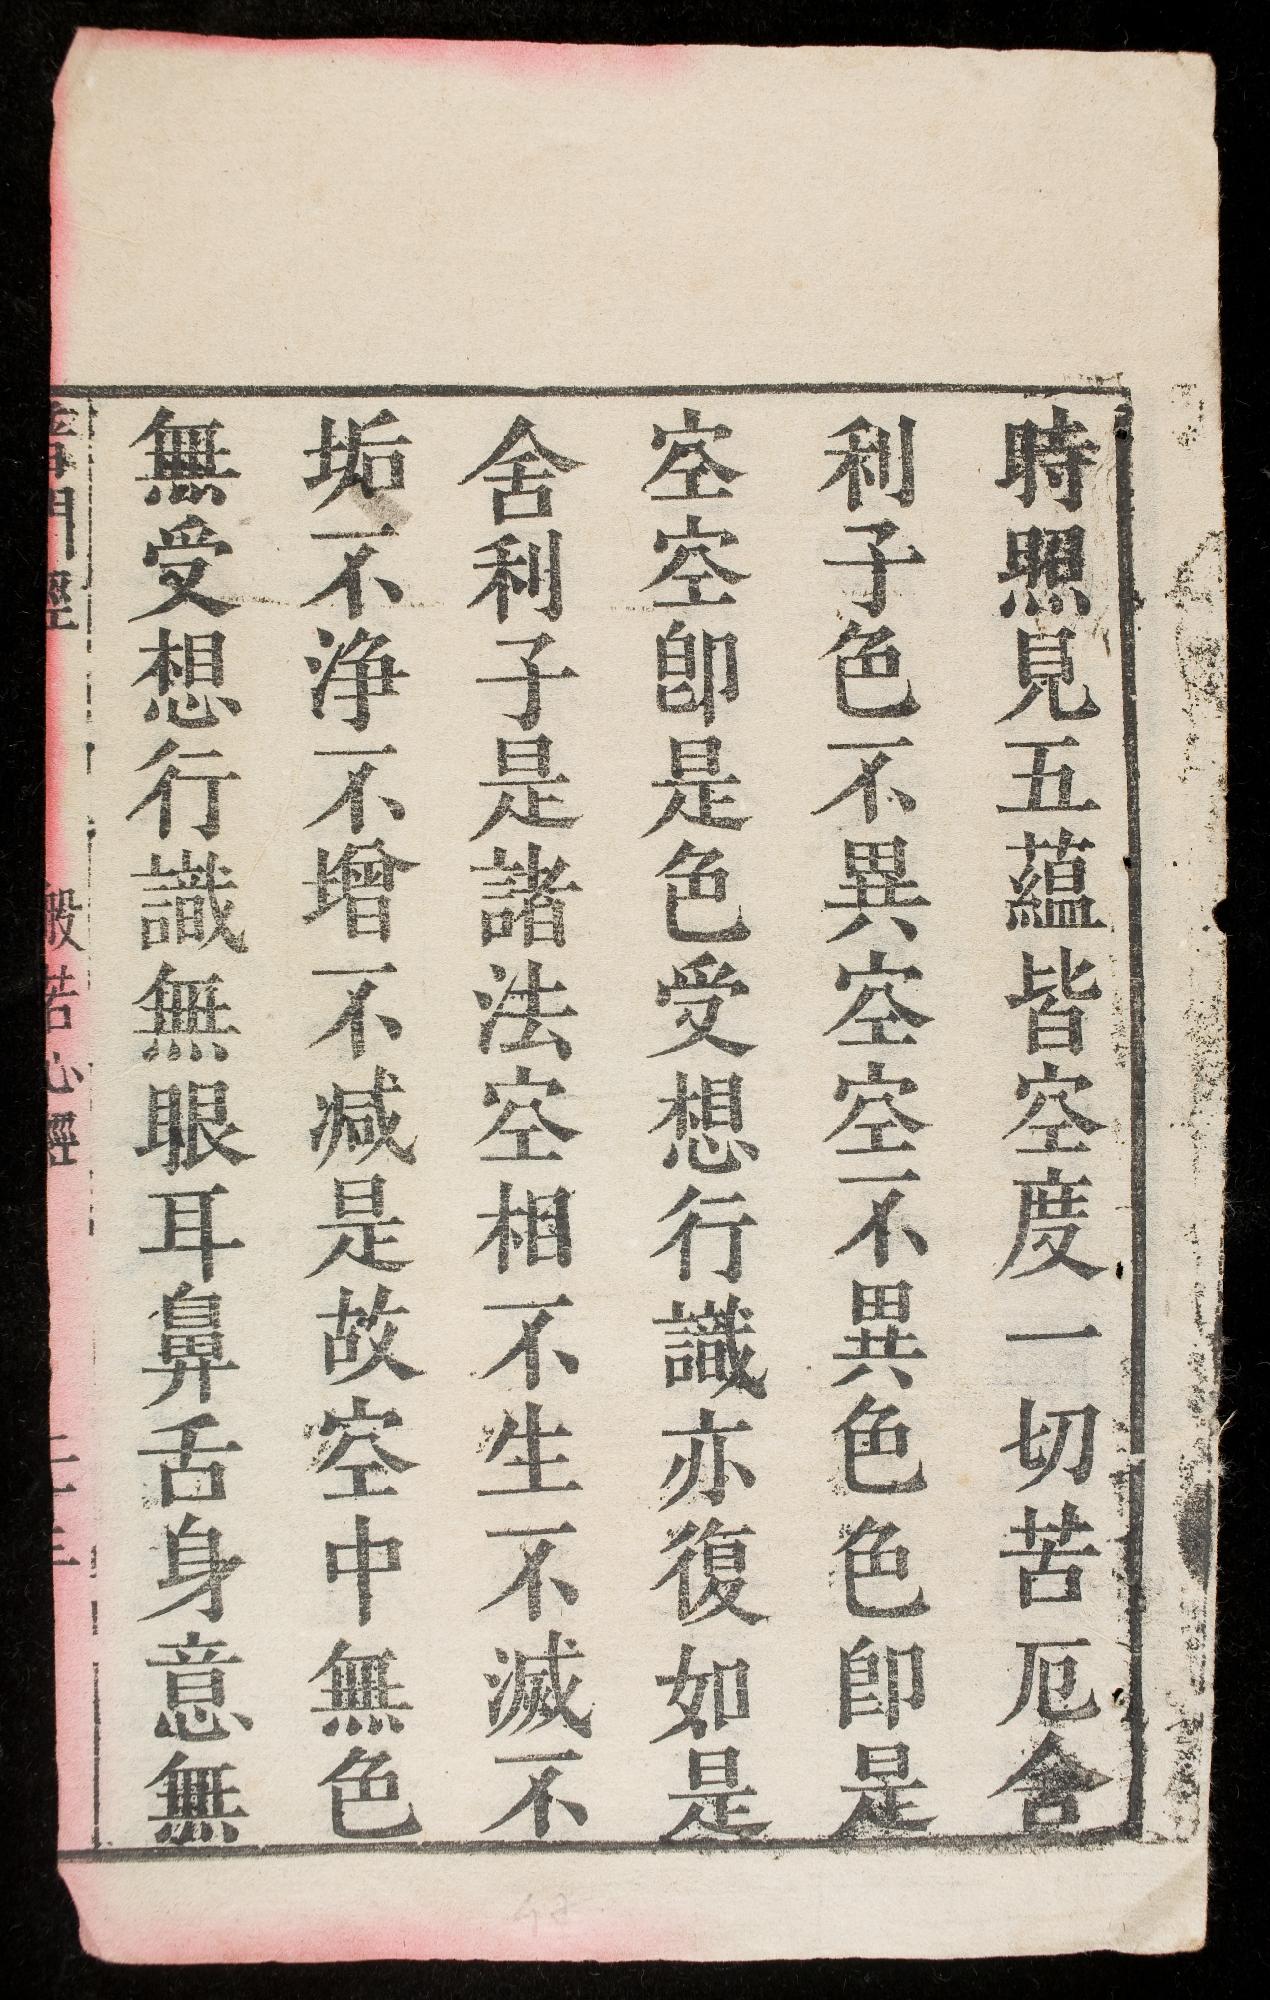 時照見五蘊皆空度一切苦厄舍
利子色不異空空不異色色即是
空空即是色受想行識亦復如是
舍利子是諸法空相不生不滅不
垢不浄不增不减是故空中無色
無受想行識無眼耳鼻舌身意無
門經
般若心經